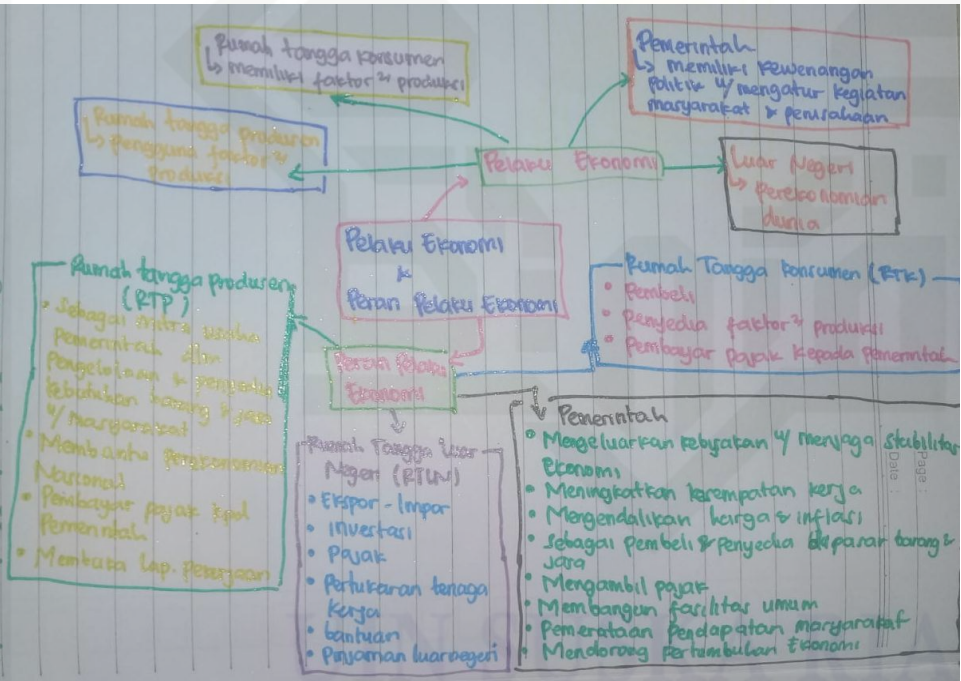 Rumah tangga konsumen
↳ memiliki faktor² produksi
Pemerintah
↳ memiliki kewenangan
politik u/ mengatur kegiatan
masyarakat & perusahaan
Rumah tangga produsen
↳ pengguna faktor²
Produksi
Pelaku Ekonomi
Luar Negeri
↳ perekonomian
dunia
Pelaku Ekonomi
&
Peran Pelaku Ekonomi
Rumah tangga produsen
(RTP)
• Sebagai mitra usaha
Pemerintah dlm
Pengelolaan & penyedia
kebutuhan barang & jasa
u/ masyarakat
• Membantu perekonomian
Nasional
• Pembayar pajak kpd
Pemerintah
• Membuka Lap. pekerjaan
Peran Pelaku
Ekonomi
Rumah Tangga Konsumen (RTK)
• Pembeli
• Penyedia faktor² produksi
• Pembayar pajak kepada pemerintah
Rumah Tangga Luar
Negeri (RTLN)
• Ekspor - Impor
• Investasi
• Pajak
• Pertukaran tenaga
kerja
• bantuan
• Pinjaman luar negeri
Pemerintah
• Mengeluarkan kebijakan u/ menjaga stabilitas
Ekonomi
• Meningkatkan kesempatan kerja
• Mengendalikan harga & inflasi
• Sebagai pembeli & penyedia pasar barang &
jasa
• Mengambil pajak
• Membangun fasilitas umum
• Pemerataan pendapatan masyarakat
• Mendorong pertumbuhan Ekonomi
Page :
Date :